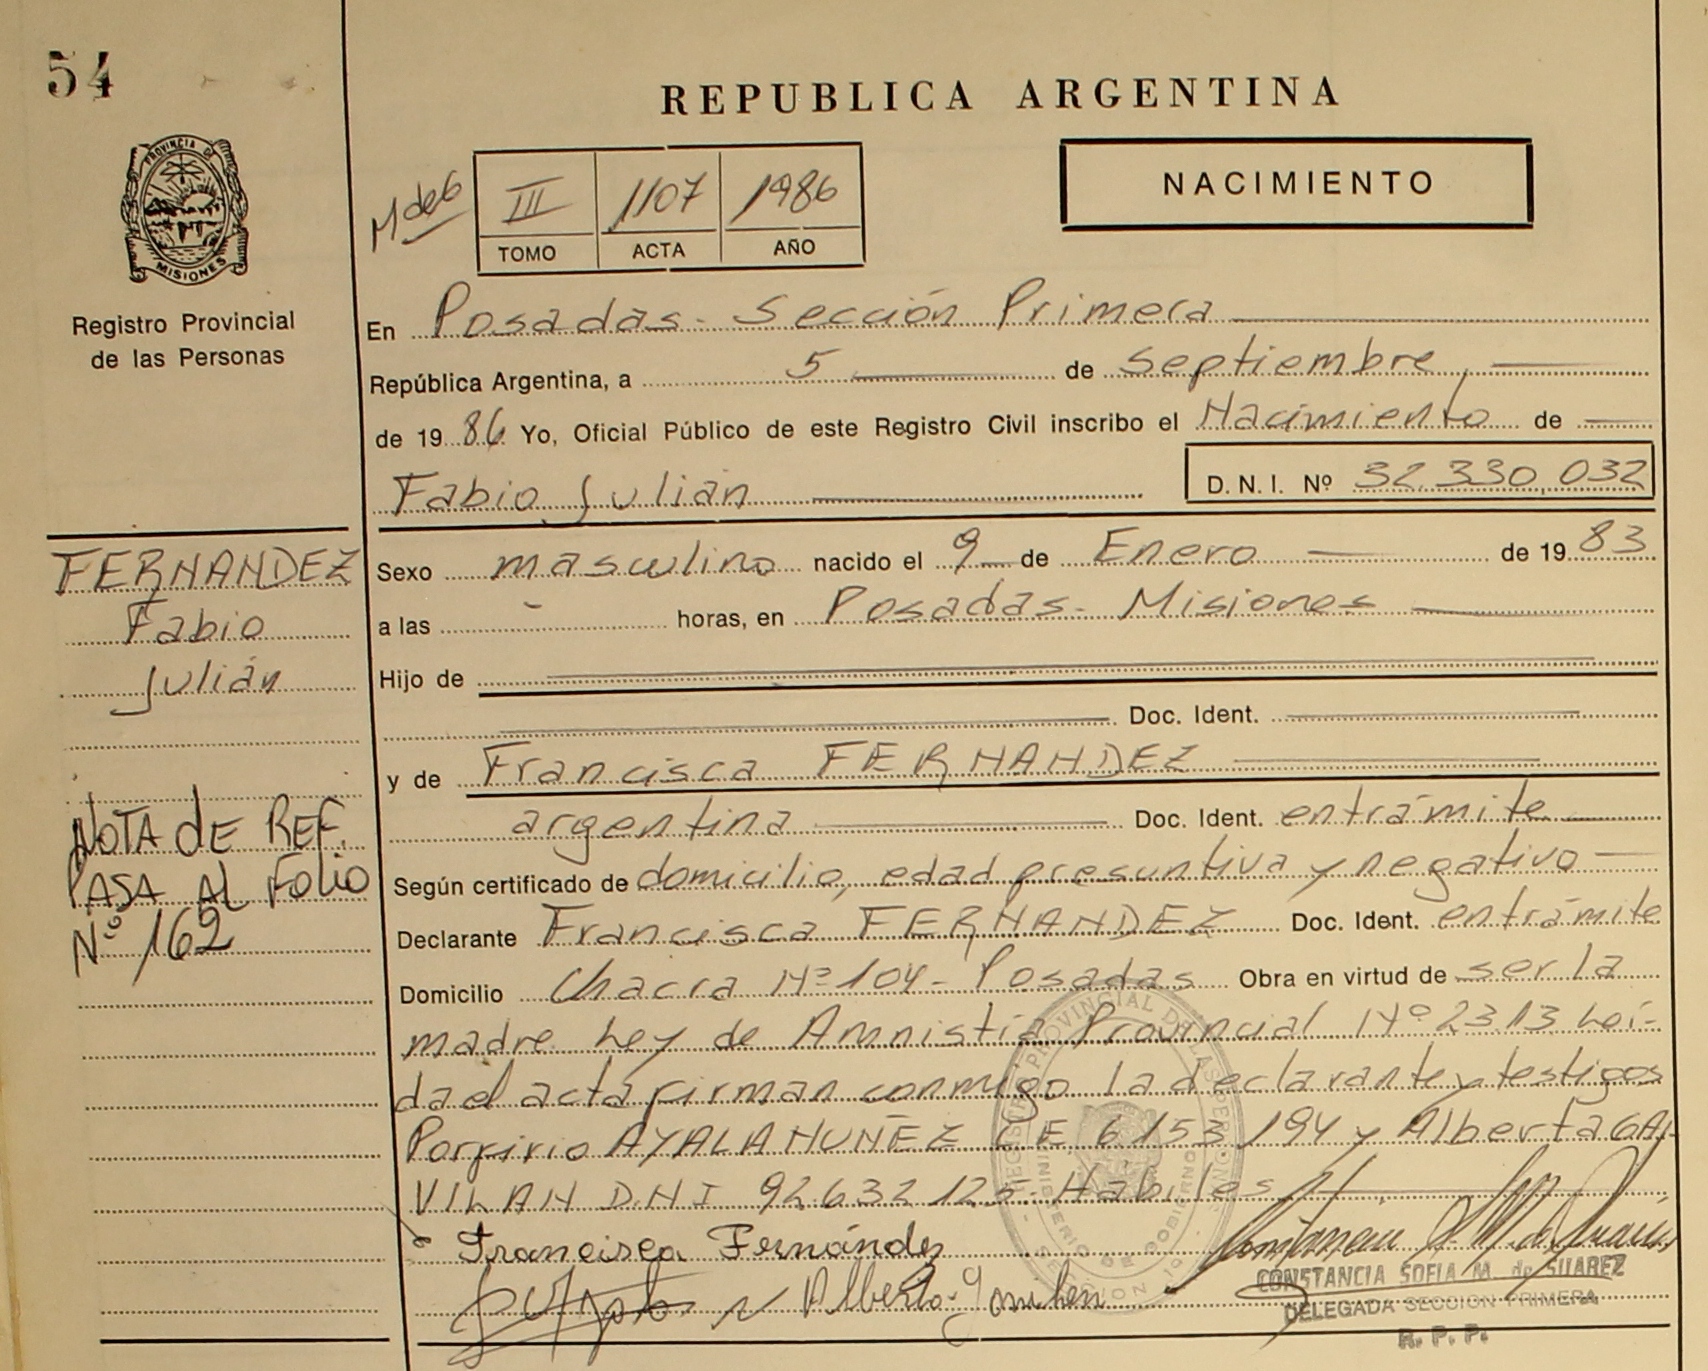 54
REPUBLICA ARGENTINA
PROVINCIA D
MISIONES
Registro Provincial
de las Personas
M de 6
III 1107 1986
TOMO ACTA AÑO
NACIMIENTO
En Posadas - Sección Primera
República Argentina, a 5 de Septiembre,
de 19 86 Yo, Oficial Público de este Registro Civil inscribo el Nacimiento de
Fabio Julián D. N. I. Nº 32.330.032
FERNANDEZ
Fabio
Julián
NOTA dE REF.
PASA AL FOLIO
Nº 162
Sexo masculino nacido el 9 de Enero de 19 83
a las - horas, en Posadas - Misiones
Hijo de
Doc. Ident.
y de Francisca FERNANDEZ
argentina Doc. Ident. entrámite
Según certificado de domicilio, edad presuntiva y negativo
Declarante Francisca FERNANDEZ Doc. Ident. entrámite
Domicilio Chacra Nº 104 - Posadas Obra en virtud de ser la
madre Ley de Amnistía Provincial Nº 2313 Leí-
da el acta firman conmigo la declarante y testigos
Porfirio AYALA NUÑEZ C E 6153194 y Alberta GA-
VILAN D.N.I 92.632.125 - Hábiles
Francisca Fernández
CONSTANCIA SOFIA M. de SUAREZ
DELEGADA SECCION PRIMERA
R. P. P.